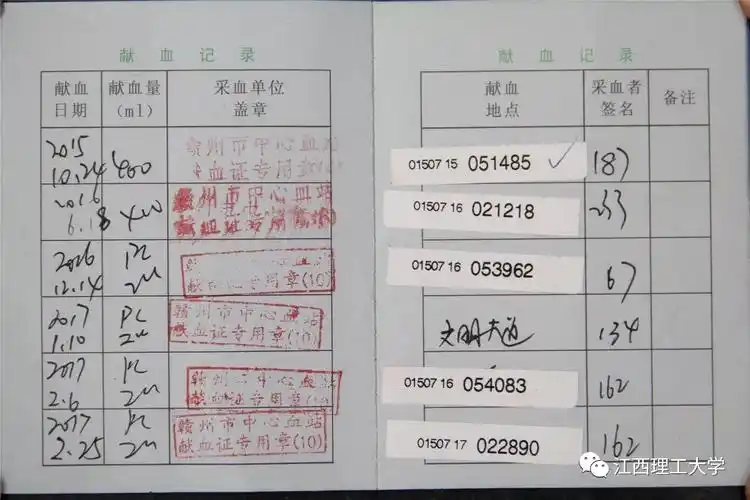 献血记录
献血日期 献血量(ml) 采血单位盖章
2015 10.24 400 赣州市中心血站 血证专用章
2016 6.18 400 赣州市中心血站 献血证专用章
2016 12.14 PC 2u 献血证专用章(10)
2017 1.10 PC 2u 赣州市中心血站 献血证专用章(10)
2017 2.6 PC 2u 赣州市中心血站 献血证专用章
2017 2.25 PC 2u 赣州市中心血站 献血证专用章(10)
献血记录
献血地点 采血者签名 备注
01507 15 051485 187
01507 16 021218 233
01507 16 053962 67
文明大道 134
01507 16 054083 162
01507 17 022890 162
江西理工大学